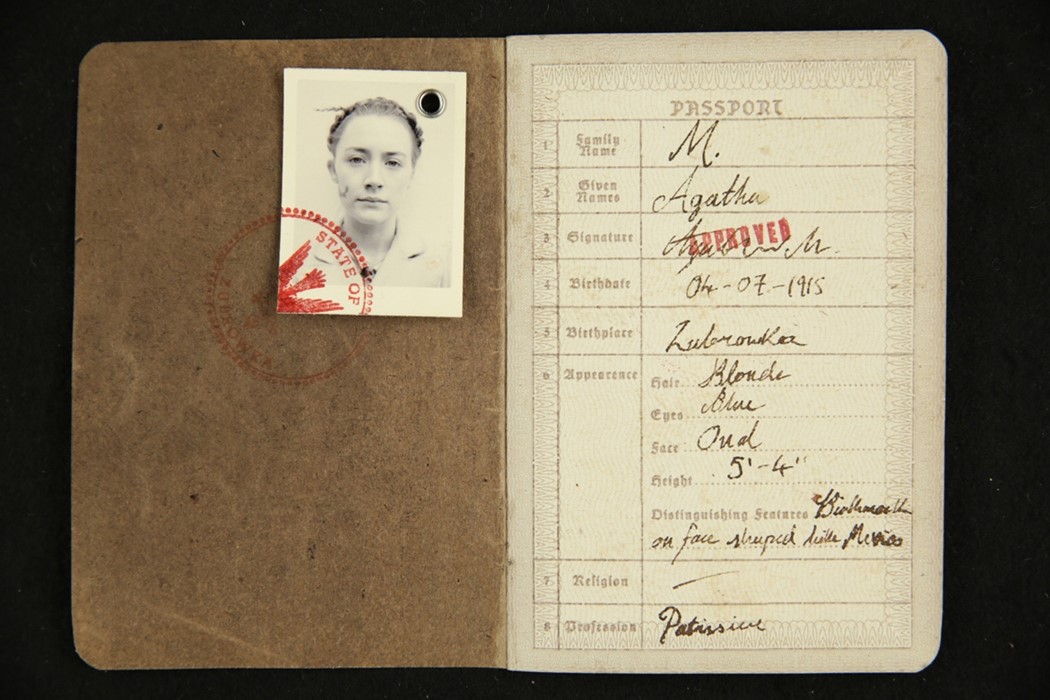 STATE OF
PASSPORT
1 Family Name M.
2 Given Names Agatha
3 Signature Agatha M.
APPROVED
4 Birthdate 04-07-1915
5 Birthplace Zubrowka
6 Appearence Hair Blonde
Eyes Blue
Face Oval
Height 5'-4"
Distinguishing Features Birthmark
on face shaped like Mexico
7 Religion —
8 Profession